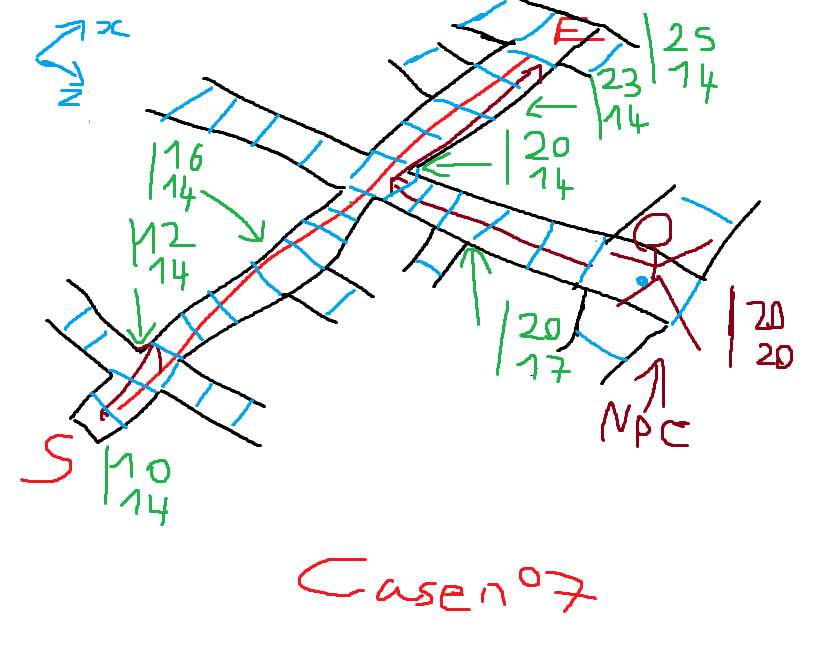 x
z
E
|25
14
|23
14
|20
14
|16
14
|12
14
|20
17
|20
20
NPC
S
|10
14
Case n°7